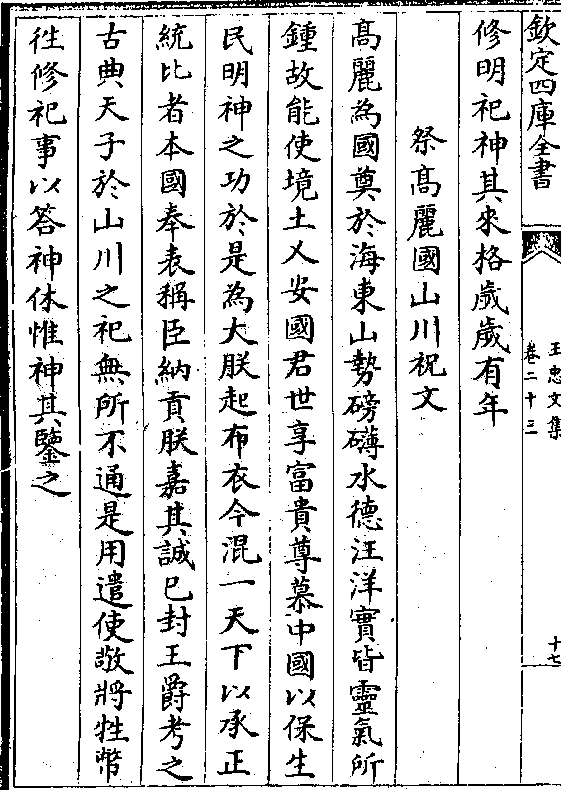 欽定四庫全書
王忠文集
卷二十三
十七
修明祀神其來格歲歲有年
祭髙麗國山川祝文
髙麗為國奠於海東山勢磅礴水德汪洋實皆靈氣所
鍾故能使境土乂安國君世享富貴尊慕中國以保生
民明神之功於是為大朕起布衣今混一天下以承正
統比者本國奉表稱臣納貢朕嘉其誠已封王爵考之
古典天子於山川之祀無所不通是用遣使敬將牲幣
徃修祀事以答神休惟神其鑒之